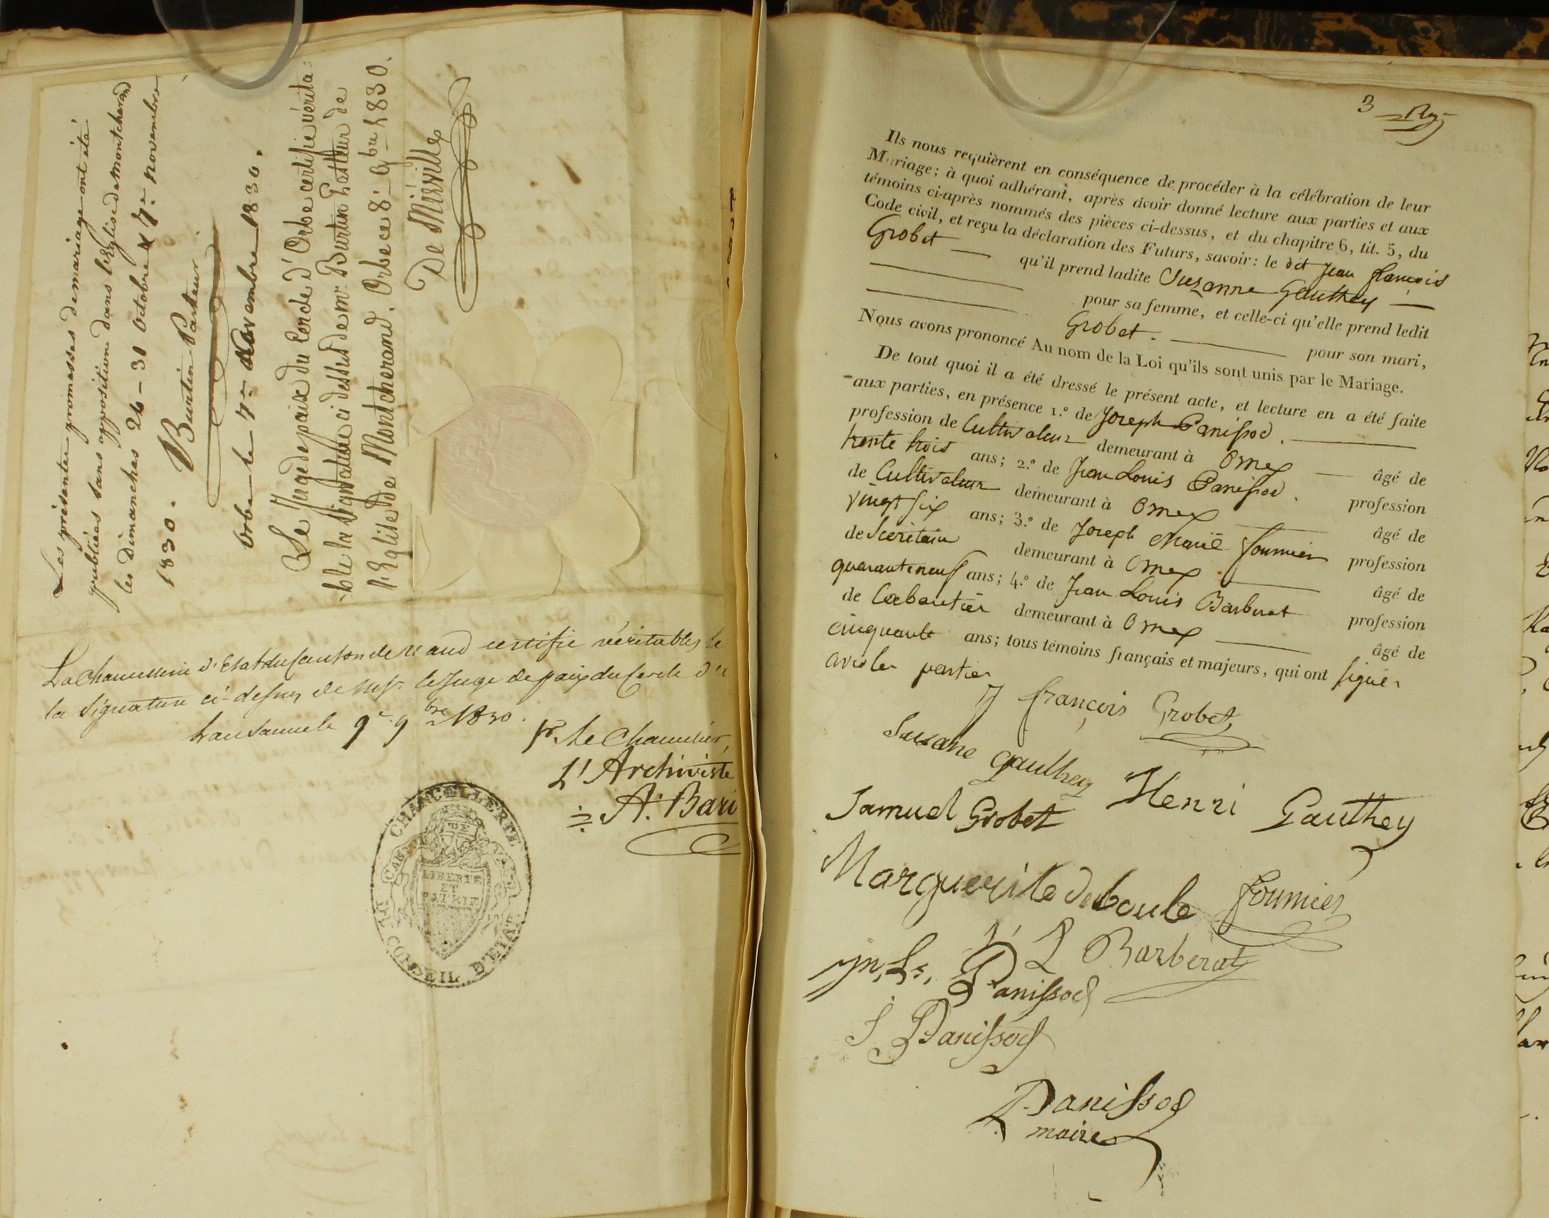 Les présentes promesses de mariage ont été
publiées sans opposition dans l'Eglise de Montcherand
les Dimanches 24 - 31 Octobre & 7me Novembre
1830.
Burtin Pasteur
Orbe le 7me Novembre 1830.
Le Juge de paix du Cercle d'Orbe certifie vérita:
:ble la signature ci dessus de mr. Burtin Pasteur de
l'Eglise de Montcherand. Orbe ce 8e 9bre 1830.
De Miéville
La Chancellerie d'Etat du Canton de Vaud certifie véritable
la signature ci-dessus de Mr. le Juge de paix du Cercle d'
Lausanne le 9e 9bre 1830.
pr. Le Chancelier,
L'Archiviste
A. Bari
CHANCELLERIE
DU CONSEIL D'ETAT
LIBERTE
ET
PATRIE
3
Ils nous requièrent en conséquence de procéder à la célébration de leur
Mariage; à quoi adhérant, après avoir donné lecture aux parties et aux
témoins ci-après nommés des pièces ci-dessus, et du chapitre 6, tit. 5, du
Code civil, et reçu la déclaration des Futurs, savoir: le dit Jean françois
Grobet qu'il prend ladite Suzanne Gauthey
pour sa femme, et celle-ci qu'elle prend ledit
Grobet. pour son mari,
Nous avons prononcé Au nom de la Loi qu'ils sont unis par le Mariage.
De tout quoi il a été dressé le présent acte, et lecture en a été faite
aux parties, en présence 1.º de Joseph Panissod.
profession de Cultivateur demeurant à Ornex âgé de
trente trois ans; 2.º de Jean Louis Panissod. profession
de Cultivateur demeurant à Ornex âgé de
vingt six ans; 3.º de Joseph Marie fournier profession
de Sécrétaire demeurant à Ornex. âgé de
quaranteneuf ans; 4.º de Jean Louis Barberat profession
de Cabartier demeurant à Ornex âgé de
cinquante ans; tous témoins français et majeurs, qui ont signés
avec les parties
J françois Grobet
Susane gauthey
Henri Gauthey
Samuel Grobet
Marguerite deboule
fournier
J L Barberat
jn. Ls. Panissod
J. Panissod
Panissod
maire